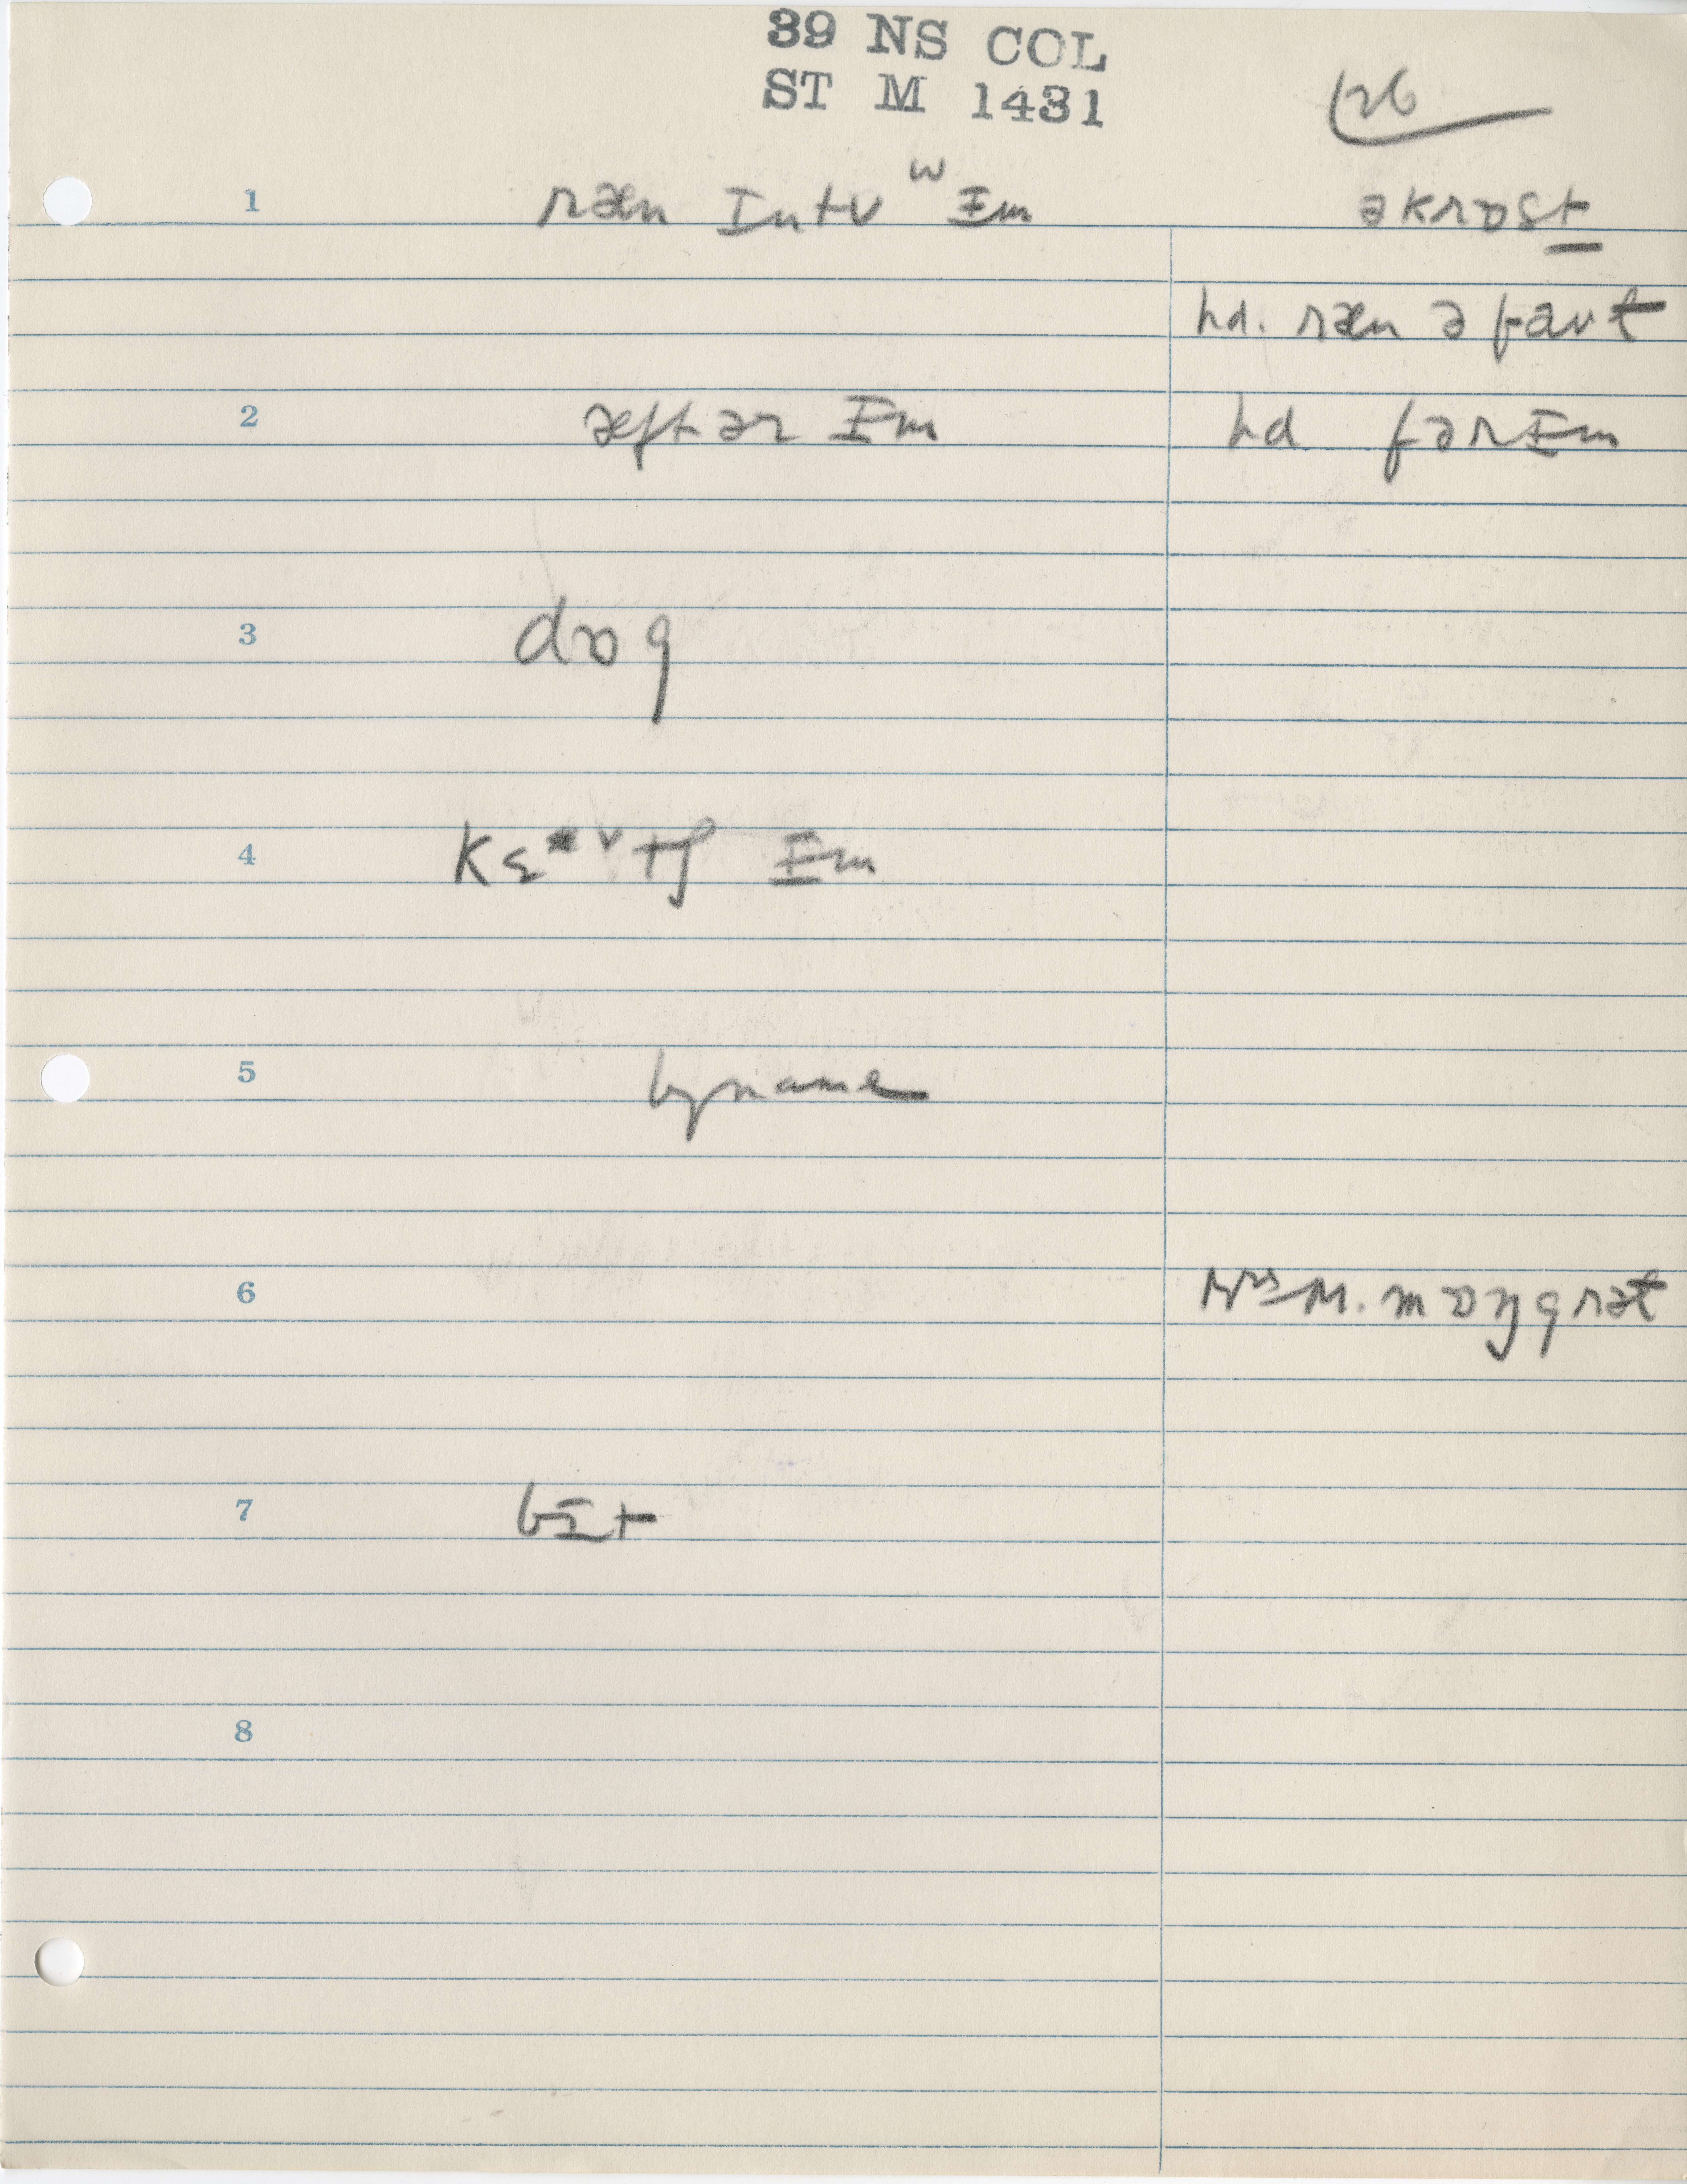 39 NS COL
ST M 1431
126
1 ræn Intʊ ʷ ɪm əkrɒst
hd. ræn əbaʊt
2 æftər ɪm hd fərɪm
3 dɒg
4 ɪm
5 byname
6 Mrs M. mɒŋgrət
7 bɪt
8